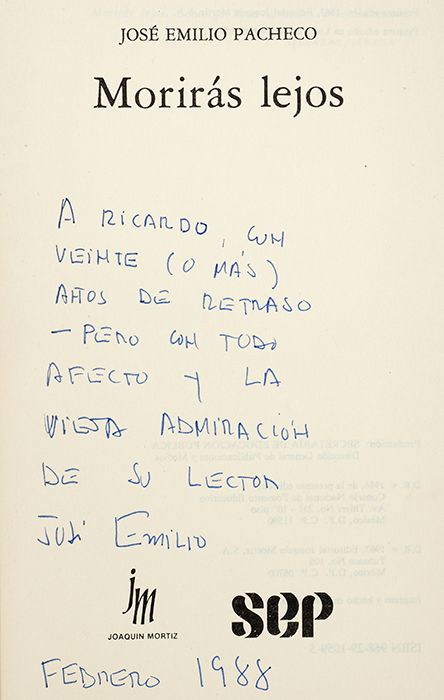 JOSÉ EMILIO PACHECO
Morirás lejos
A RICARDO, CON
VEINTE (O MÁS)
AÑOS DE RETRASO
— PERO CON TODO
AFECTO Y LA
VIEJA ADMIRACIÓN
DE SU LECTOR
JOSÉ EMILIO
jm
JOAQUÍN MORTIZ
sep
FEBRERO 1988